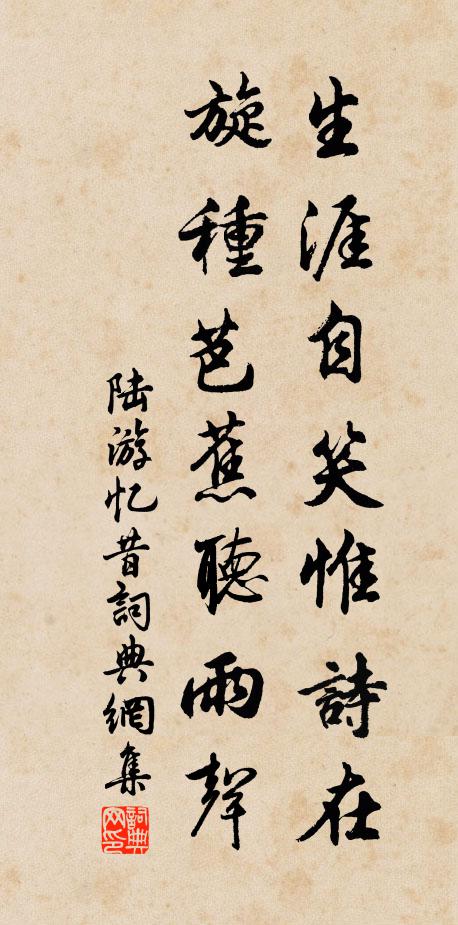 生涯自笑惟詩在
旋種芭蕉聽雨聲
陆游忆昔詞典網集
詞典网印